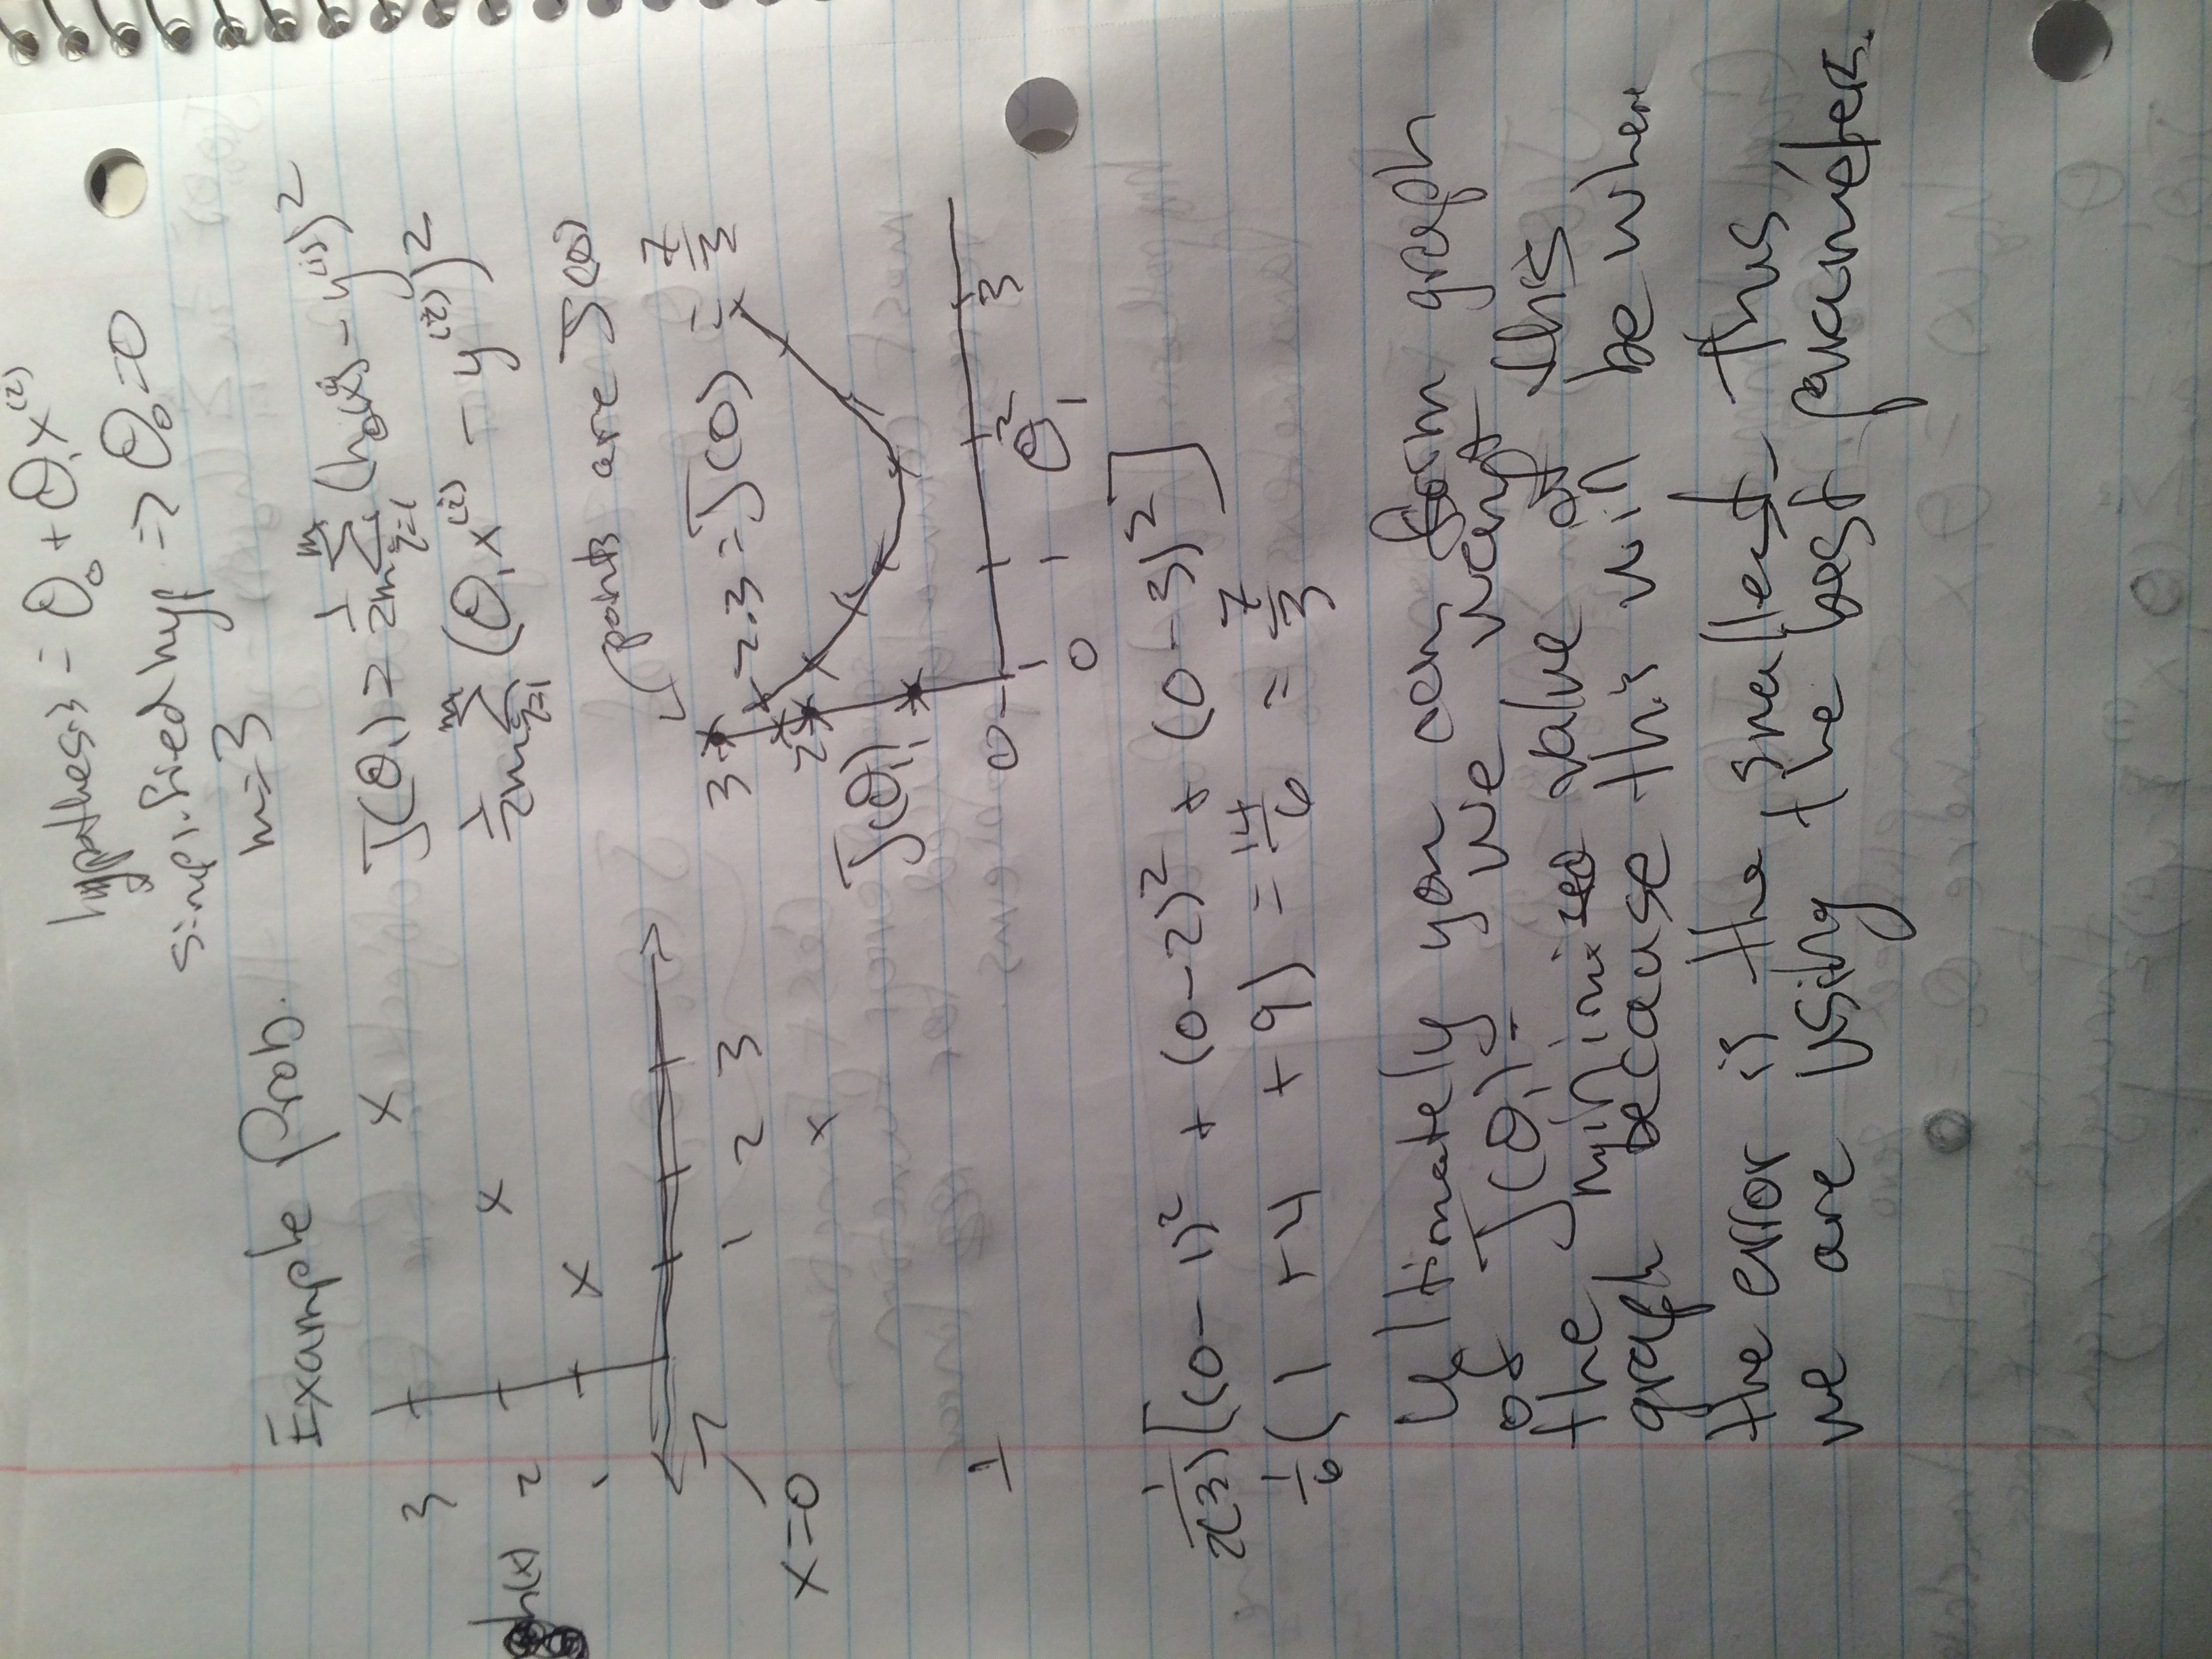 hypothesis = θ₀ + θ₁x⁽ⁱ⁾
simplified hyp => θ₀=0
m=3
Example Prob.
J(θ₁) = 1/2m Σᵢ₌₁ᵐ (hθ(x⁽ⁱ⁾) - y⁽ⁱ⁾)²
1/2m Σᵢ₌₁ᵐ (θ₁x⁽ⁱ⁾ - y⁽ⁱ⁾)²
3
h(x) 2
1
1 2 3
x=0
points are J(θ)
3
2.3 = J(0) = 7/3
2
J(θ₁) 1
0
0 1 2 3
θ₁
1
1/2(3) [(0-1)² + (0-2)² + (0-3)²]
1/6 (1 +4 +9) = 14/6 = 7/3
Ultimately you can form graph
of J(θ₁)- we want
the minimized value of this
graph because this will be where
the error is the smallest thus
we are using the best parameters.